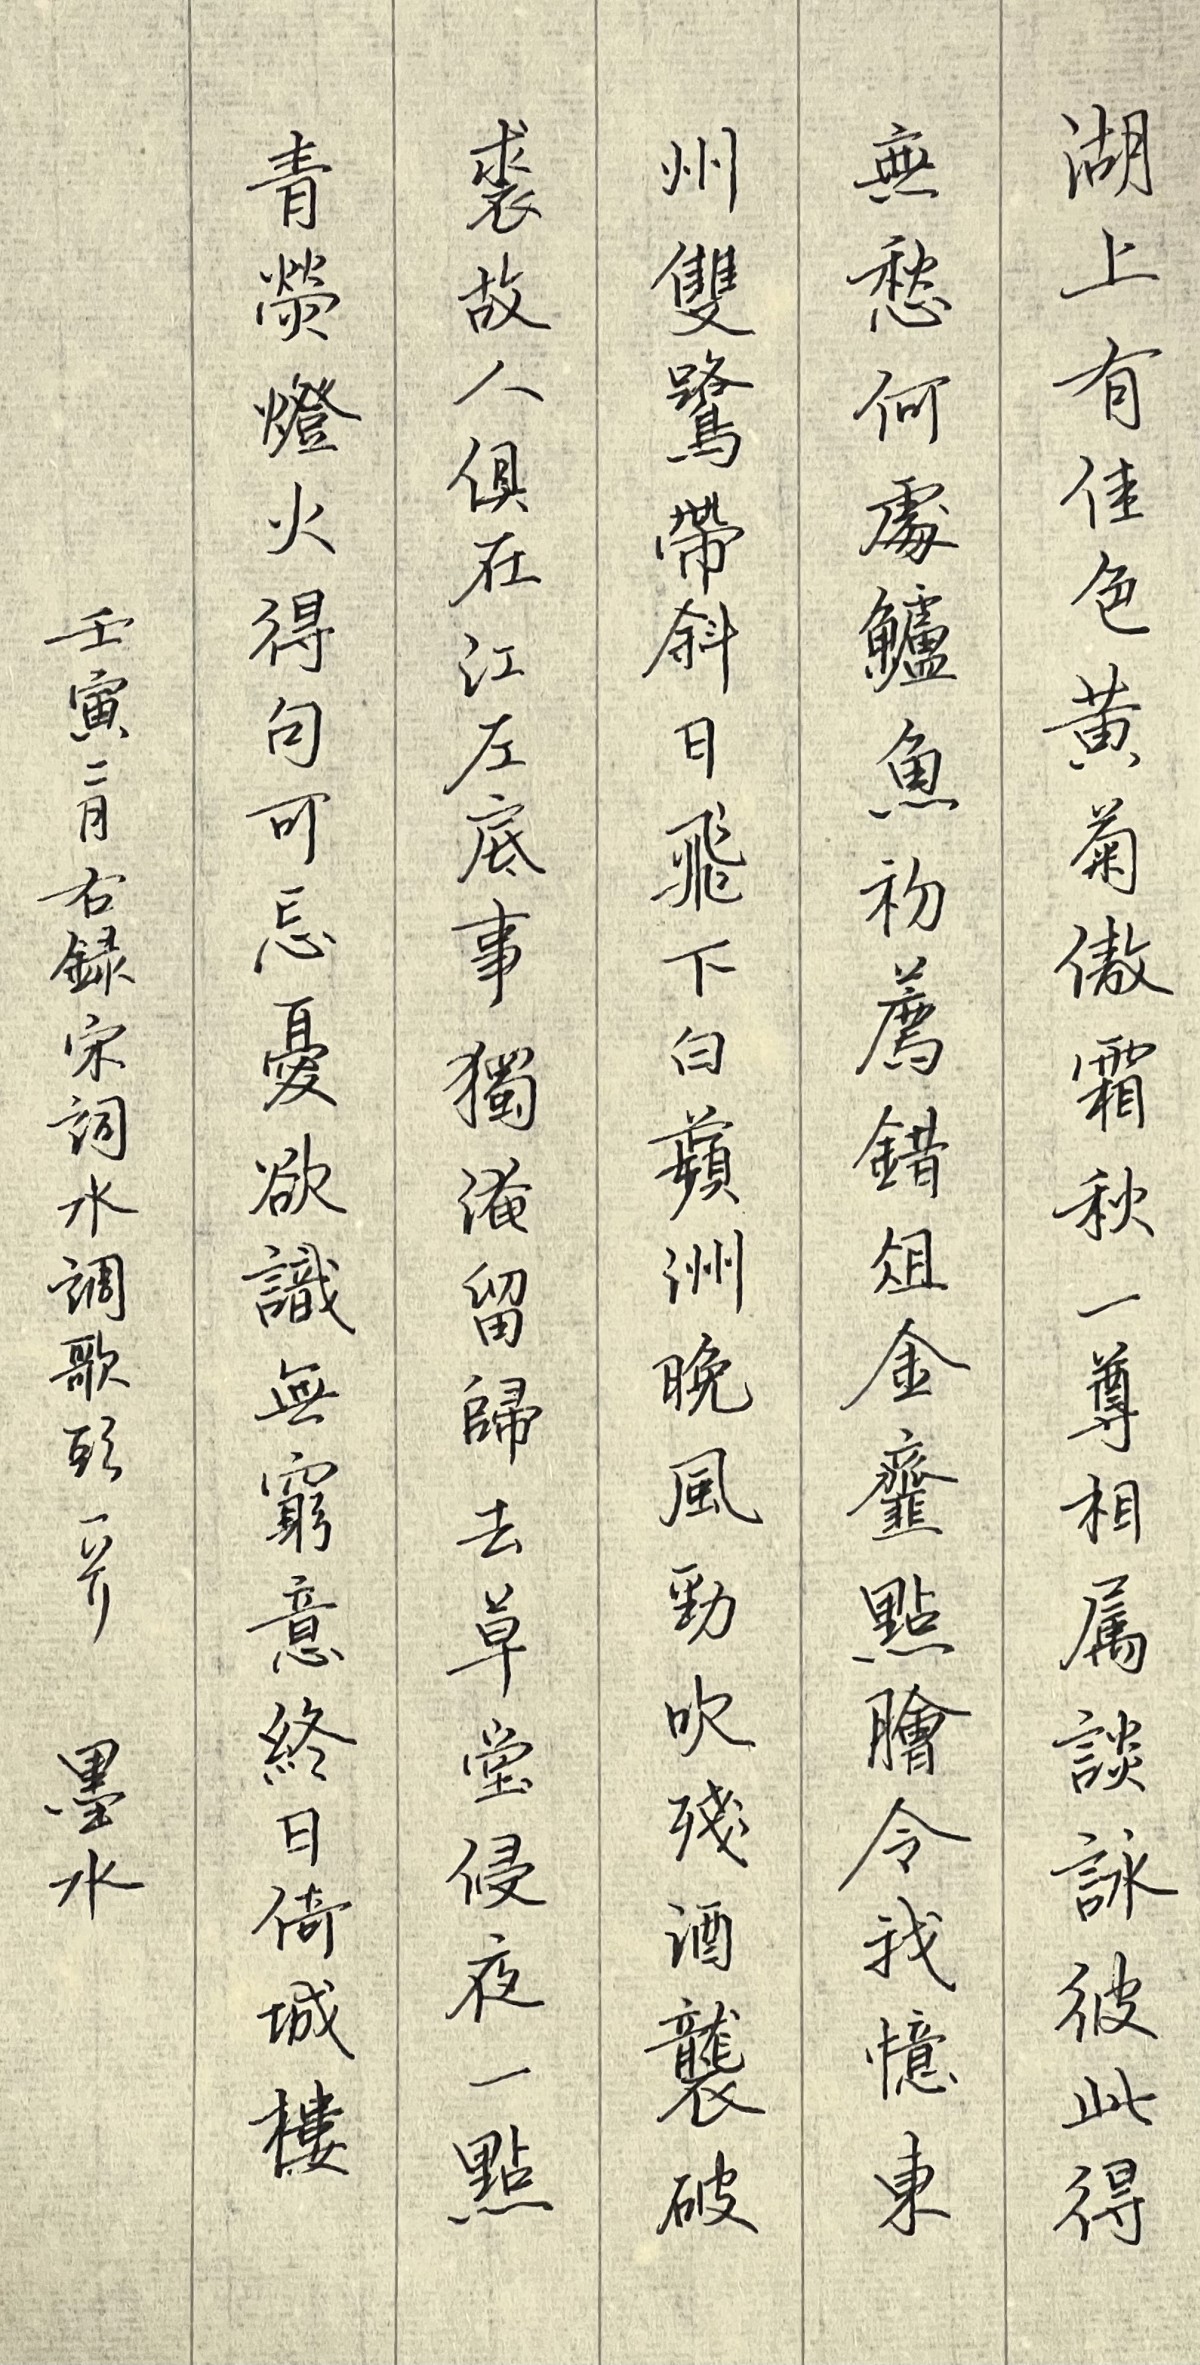 湖上有佳色黄菊傲霜秋一尊相属談詠彼此得
無愁何處鱸魚初薦錯俎金虀點膾令我憶東
州雙鷺帶斜日飛下白蘋洲晚風勁吹殘酒襲破
裘故人俱在江左底事獨淹留歸去草堂侵夜一點
青熒燈火得句可忘憂欲識無窮意終日倚城樓
壬寅二月右録宋詞水調歌頭一 墨水